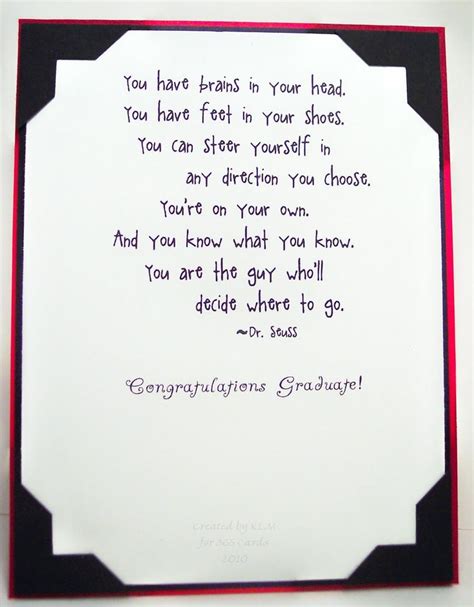 You have brains in your head.
You have feet in your shoes.
You can steer yourself in
any direction you choose.
You're on your own.
And you know what you know.
You are the guy who'll
decide where to go.
~Dr. Seuss
Congratulations Graduate!
Created by KLM
for 365 Cards
2010